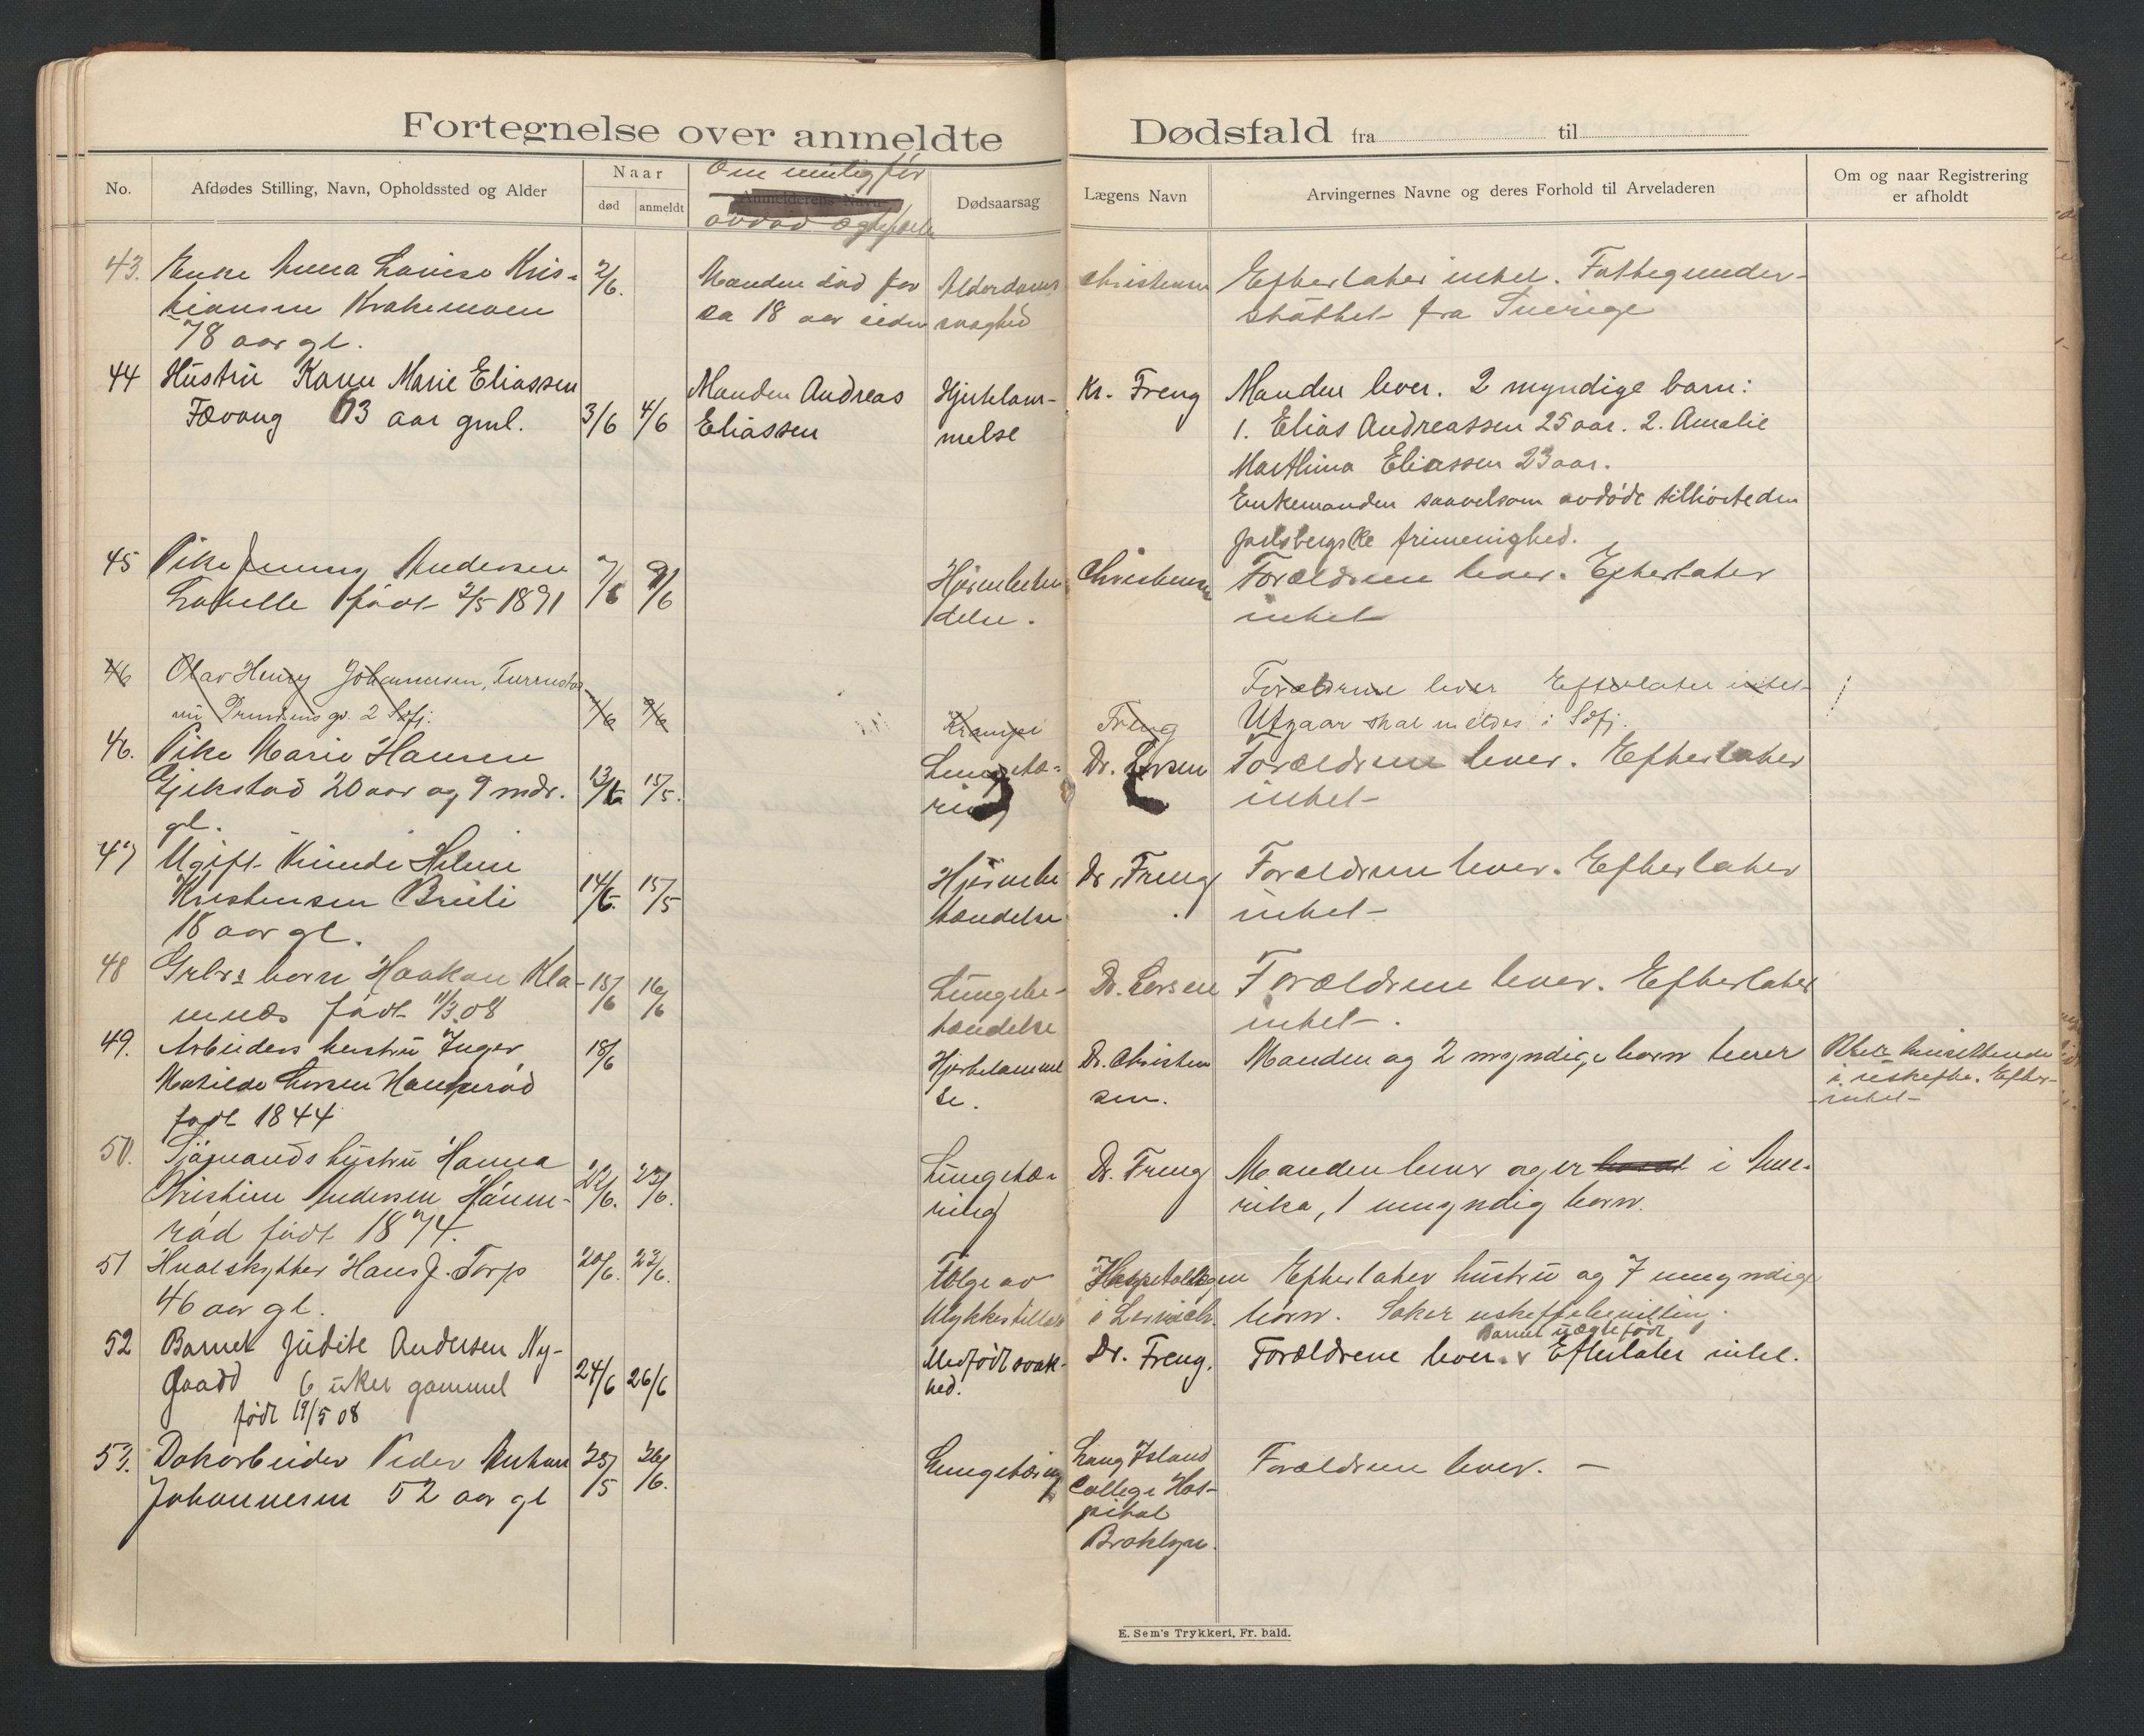 Fortegnelse over anmeldte Dødsfald fra til
No. Afdødes Stilling, Navn, Opholdssted og Alder Naar død anmeldt Dødsaarsag Lægens Navn Arvingernes Navne og deres Forhold til Arveladeren Om og naar Registrering er afholdt
Om mulig før
Anmelderens Navn
avdød ægtefælle
43. Enke Anna Lovise Kris- 2/6. Manden død for Alderdoms Christensen Efterlater intet. Fattigunder-
tiansen Krakemoen ca 18 aar siden svaghed støttet fra Sverige
78 aar gl.
44 Hustru Karen Marie Eliassen Manden Andreas Hjertelam- Kr. Freng Manden lever. 2 myndige barn:
Fævang 63 aar gml. 3/6 4/6 Eliassen melse 1. Elias Andreassen 25 aar. 2. Amalie
Marthina Eliassen 23 aar.
Enkemanden saavelsom avdøde tilhørte den
Jarlsbergske frimenighed.
45 Pike Jenny Andersen 7/6 9/6 Hjernebeten Christensen Forældrene lever. Efterlater
født 2/5 1891 delse. intet
46 Olav Henry Johannesen, Forældrene lever Efterlater intet
2 Sofj. 7/6 7/6 Krampe Freng Utgaar skal meldes i Sofj.
46. Pike Marie Hansen Lungetæ- Dr. Larsen Forældrene lever. Efterlater
Gjekstad 20 aar og 9 mdr. 13/6 15/5. ring intet
gl.
47 Ugift Kvinde Helene Hjernebe Dr. Freng Forældrene lever. Efterlater
Kristensen 14/6. 15/5 tændelse intet
18 aar gl.
48 Grbrs barn Haakon Kla- 15/6 16/6 Lungebe- Dr. Larsen Forældrene lever. Efterlater
mnæs født 11/3.08 tændelse intet.
49. Arbeiders hustru Inger 18/6 Hjertelammel Dr. Christen Manden og 2 myndige barn lever
Matilde Larsen Haugerød se. sen. i uskiftet. Efter-
født 1844 intet
50. Sjømands hustru Hanna 22/6. 23/6. Lungetæ- Dr. Freng Manden lever og er i Ame-
Kristine Andersen ring rika, 1 umyndig barn.
rød født 1874.
51 Hvalskytter Hans J. Torp 20/6. 23/6. Følge av Hospitalslægen Efterlater hustru og 7 umyndige
46 aar gl. Ulykkestilfælde i Lerwick. barn. Søker uskiftebevilling.
Barnet uægtefødt
52 Barnet Judite Andersen Ny- 24/6 26/6 Medfødt svak- Dr. Freng. Forældrene lever. Efterlater intet.
gaard 6 uker gammel hed.
født 19/5 08
53. Dokarbeider Peder Anton 25/5 26/6. Lungetæring Long Island Forældrene lever. —
Johannesen 52 aar gl College Hos-
pital
Broklyn.
E. Sem's Trykkeri, Fr.hald.